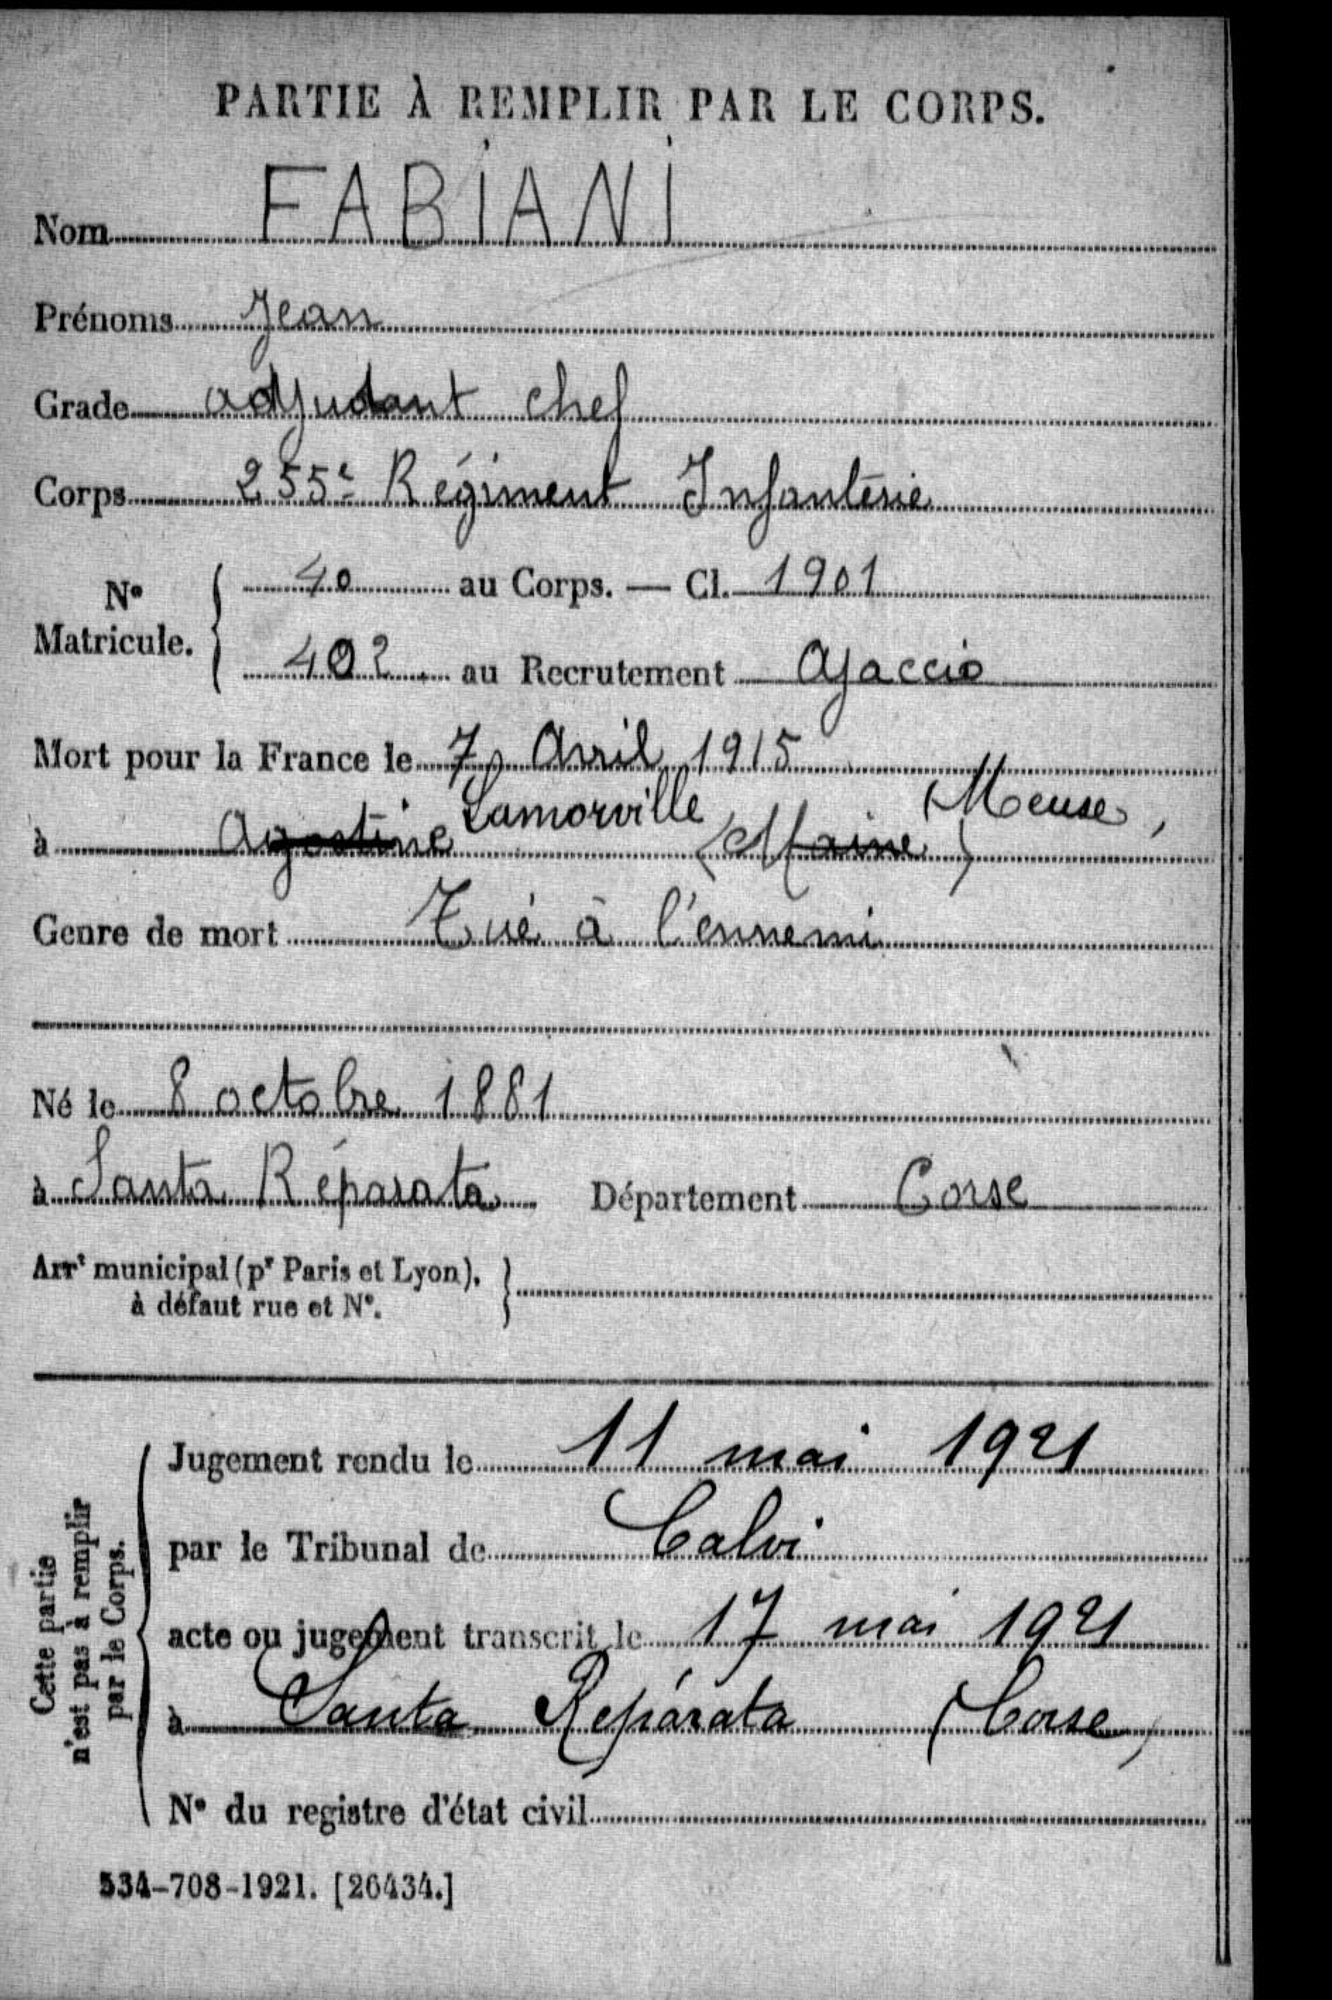 PARTIE À REMPLIR PAR LE CORPS.
Nom FABIANI
Prénoms Jean
Grade adjudant chef
Corps 255e Régiment Infanterie
N° Matricule. { 40 au Corps. — Cl. 1901
402 au Recrutement Ajaccio
Mort pour la France le 7 Avril 1915
Lamorville (Meuse)
à (Maine)
Genre de mort Tué à l'ennemi
Né le 8 octobre 1881
à Santa Réparata Département Corse
Arrt municipal (pr Paris et Lyon),
à défaut rue et N°.
Cette partie
n'est pas à remplir
par le Corps.
Jugement rendu le 11 mai 1921
par le Tribunal de Calvi
acte ou jugement transcrit le 17 mai 1921
à Santa Réparata (Corse)
N° du registre d'état civil
534-708-1921. [26434.]